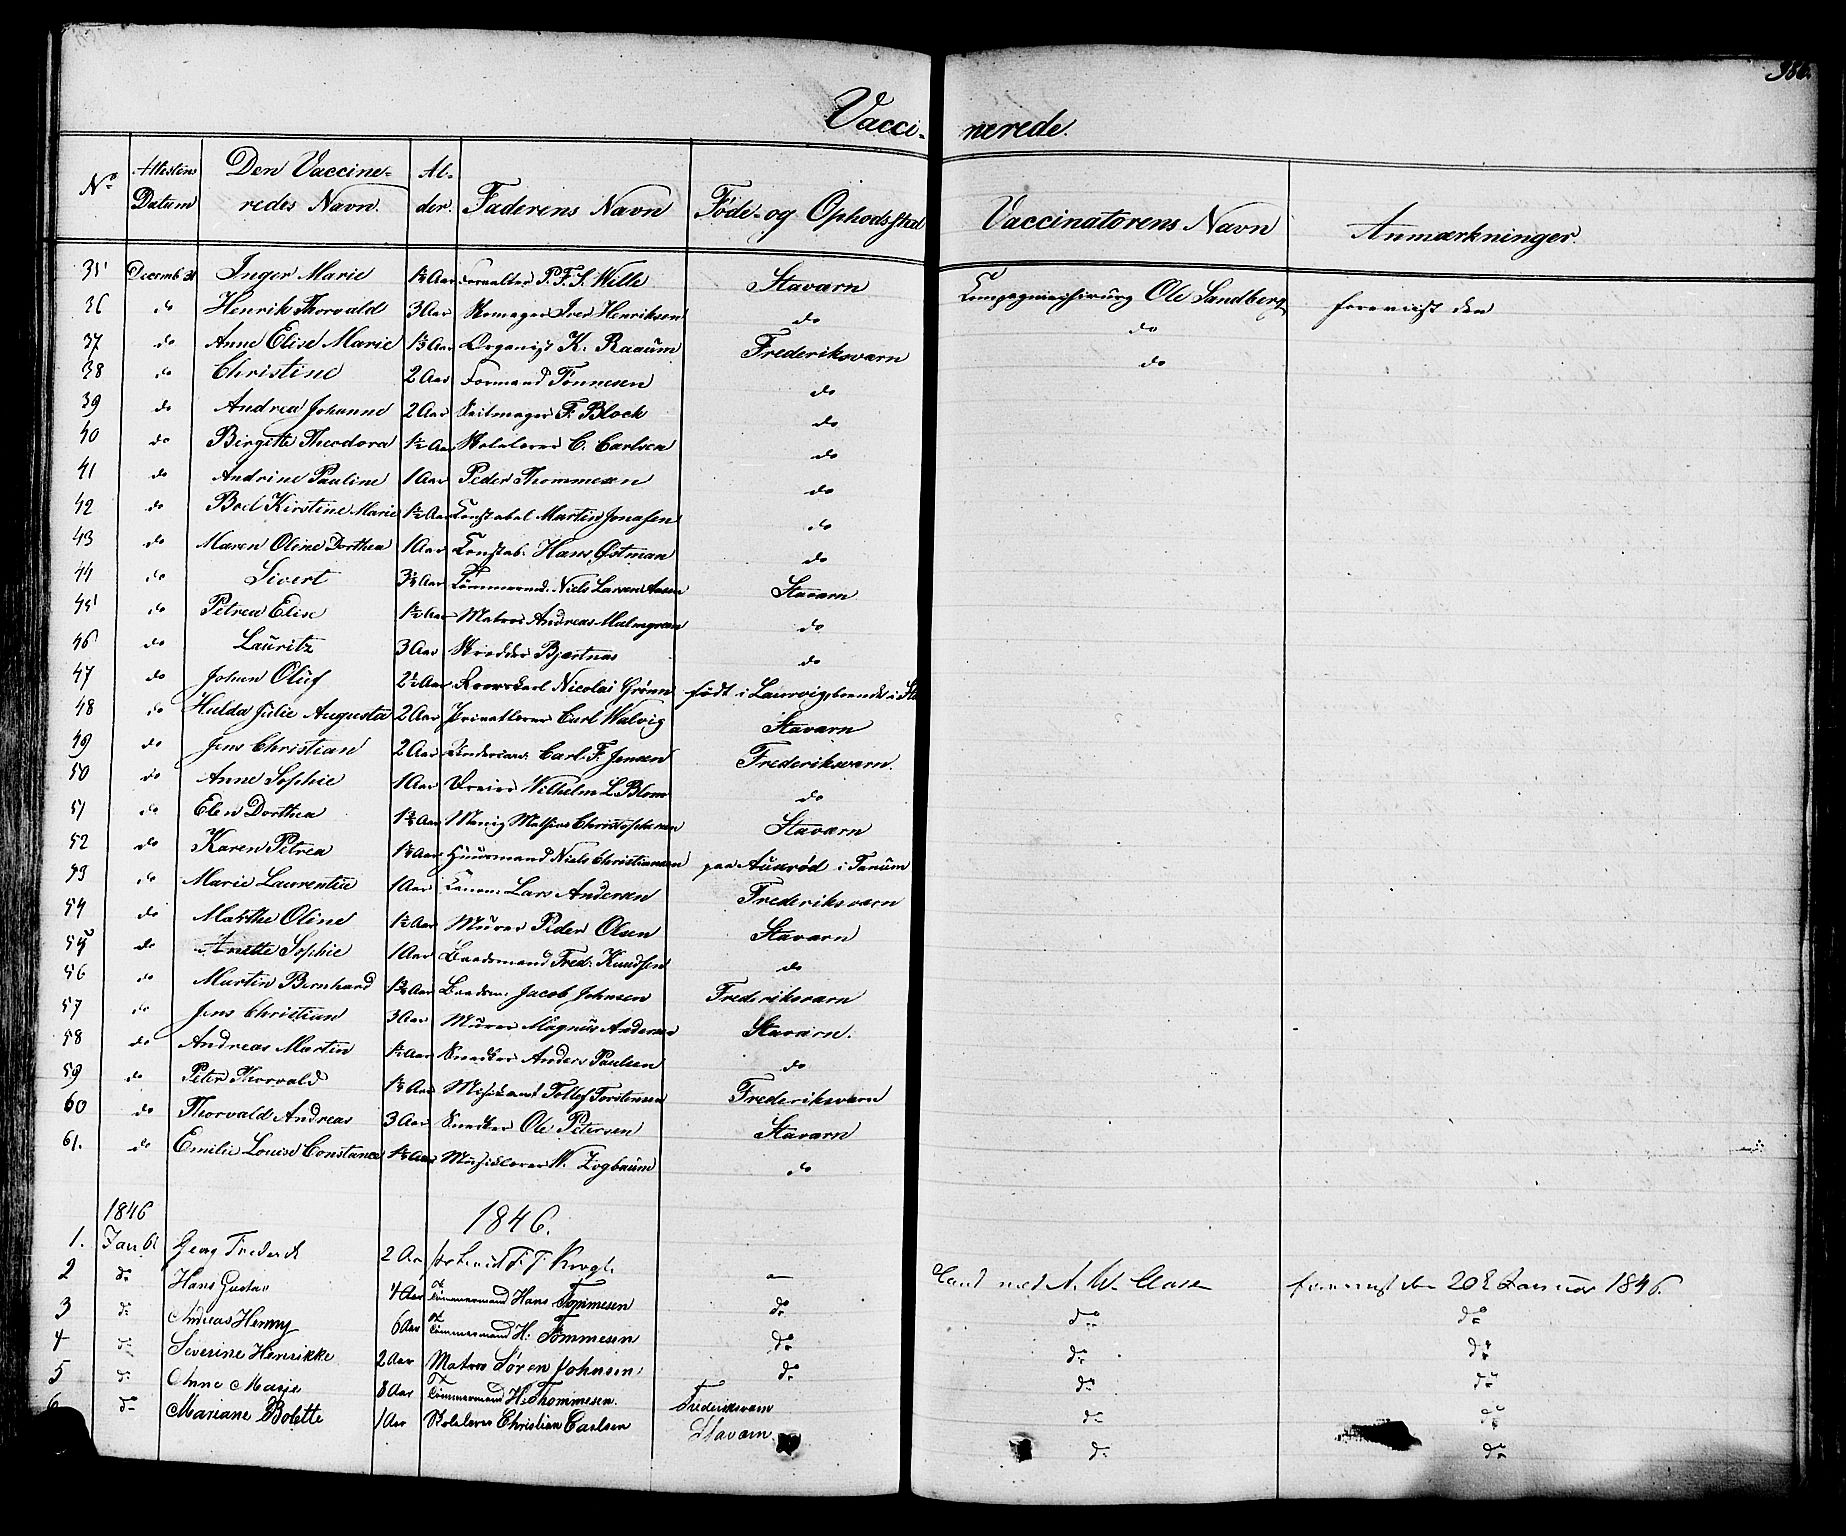 366.
Vacci- nerede.
No Attestens Datum Den Vaccineredes Navn. Alder. Faderens Navn Føde- og Opholdssted Vaccinatorens Navn Anmærkninger.
35 Decemb 31 Inger Marie 1½ Aar Forvalter P. F. S. Wille Staværn Ole Sandberg
36 do Henrik Thorvald 3 Aar Skomager Iver Henriksen do do
37 do Anne Elise Marie 1½ Aar Organist K. Raaum Frederiksværn do
38 do Christine 2 Aar Formand Tönnesen do
39 do Andrea Johanne 2 Aar Seilmager F. Block do
40 do Birgitte Theodora 1½ Aar Skolelærer C. Carlsen do
41 do Andrine Pauline 1 Aar Peder Thommesen do
42 do Boel Kirstine Marie 1½ Aar Konstabel Martin Jonassen do
43 do Maren Oline Dorthea 1 Aar Konstab. Hans Østman do
44 do Sivert 3½ Aar Tömmermd. Niels Larsen Aasen Staværn
45 do Petrea Elise 1½ Aar Matros Andreas Malmgreen do
46 do Lauritz 3 Aar Skrædder Bjertnæs do
47 do Johan Oluf 2½ Aar Nicolai Grönn født i Laurvig
48 do Hulda Julie Augusta 2 Aar Privatlærer Carl Walvig Staværn
49 do Jens Christian 2 Aar Carl F. Jensen Frederiksværn.
50 do Anne Sophie 1 Aar Dreier Wilhelm L. Blom do
51 do Elen Dorthea 1½ Aar Mathias Christophersen Staværn
52 do Karen Petrea 1½ Aar Huusmand Niels Christiansen paa Auxrød i Tanum
53 do Marie Laurentie 1 Aar Lars Andersen Frederiksværn
54 do Marthe Oline 1½ Aar Murer Peder Olsen Staværn
55 do Anette Sophie 1 Aar Baadsmand Fred: Knudsen do
56 do Martin Bernhard 1½ Aar Baadsm: Jacob Johnsen Frederiksværn
57 do Jens Christian 3 Aar Murer Magnus Andersen Staværn.
58 do Andreas Martin 1½ Aar Snedker Anders Paulsen do
59 do Peter Thorvald 1½ Aar Musikant Tollef Torstensen Frederiksværn
60 do Thorvald Andreas 3 Aar Snedker Ole Petersen Staværn
61. do Emilie Louise Constance 1½ Aar Musiklærer W. Zogbaum do
1846 1846.
1. Jan 6 Georg Frederik 2 Aar
2 do Hans Gustav 4 Aar Tömmermand Hans Tommesen do A. W. Clasen 20de Januar 1846.
3 do Andreas Henny 6 Aar Tömmermand H. Tommesen do do do
4 do Severine Henrikke 2 Aar Matros Sören Johnsen do do do
5 do Anne Marie 8 Aar Tömmermand H: Thommesen. Frederiksværn do do
6 do Mariane Bolette 1 Aar Skolelærer Christian Carlsen Stavern do do
do do